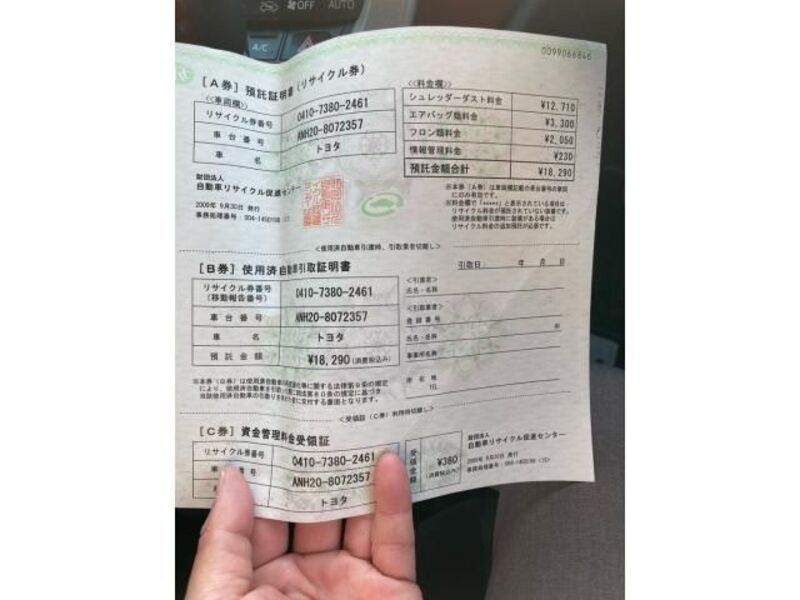 OFF AUTO
A/C
0099066846
[A券] 預託証明書(リサイクル券)
<<車両欄>>
リサイクル券番号 0410-7380-2461
車台番号 ANH20-8072357
車名 トヨタ
<<料金欄>>
シュレッダーダスト料金 ¥12,710
エアバッグ類料金 ¥3,300
フロン類料金 ¥2,050
情報管理料金 ¥230
預託金額合計 ¥18,290
財団法人
自動車リサイクル促進センター
2009年 9月30日 発行
※本券(A券)は車両欄記載の車台番号の車両
にのみ有効です。
※料金欄で「*****」と表示されている場合は
リサイクル料金が預託されていない装備です。
使用済自動車引渡時に装備がある場合は
リサイクル料金の追加預託が必要です。
<使用済自動車引渡時、引取業者切離し>
[B券] 使用済自動車引取証明書
引取日: 年 月 日
リサイクル券番号
(移動報告番号) 0410-7380-2461
車台番号 ANH20-8072357
車名 トヨタ
預託金額 ¥18,290(消費税込み)
<引渡者>
氏名・名称
<引取業者>
登録番号
氏名・名称 印
事業所名称
所在地
TEL
<受領証(C券)利用時切離し>
[C券] 資金管理料金受領証
リサイクル券番号 0410-7380-2461
番号 ANH20-8072357
トヨタ
受領金額 ¥380
(消費税込み)
財団法人
自動車リサイクル促進センター
2009年 9月30日 発行